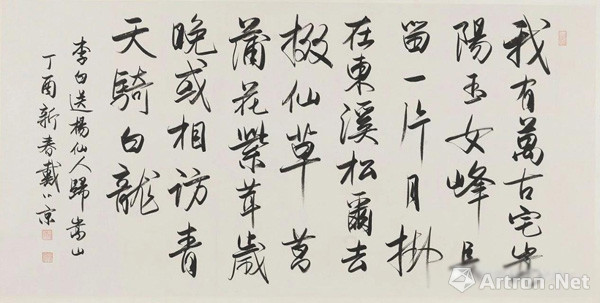 我有萬古宅嵩
陽玉女峰長
留一片月掛
在東溪松爾去
掇仙草菖
蒲花紫茸歲
晚或相訪青
天騎白龍
李白送楊仙人歸嵩山
丁酉新春戴小京
Artron.Net